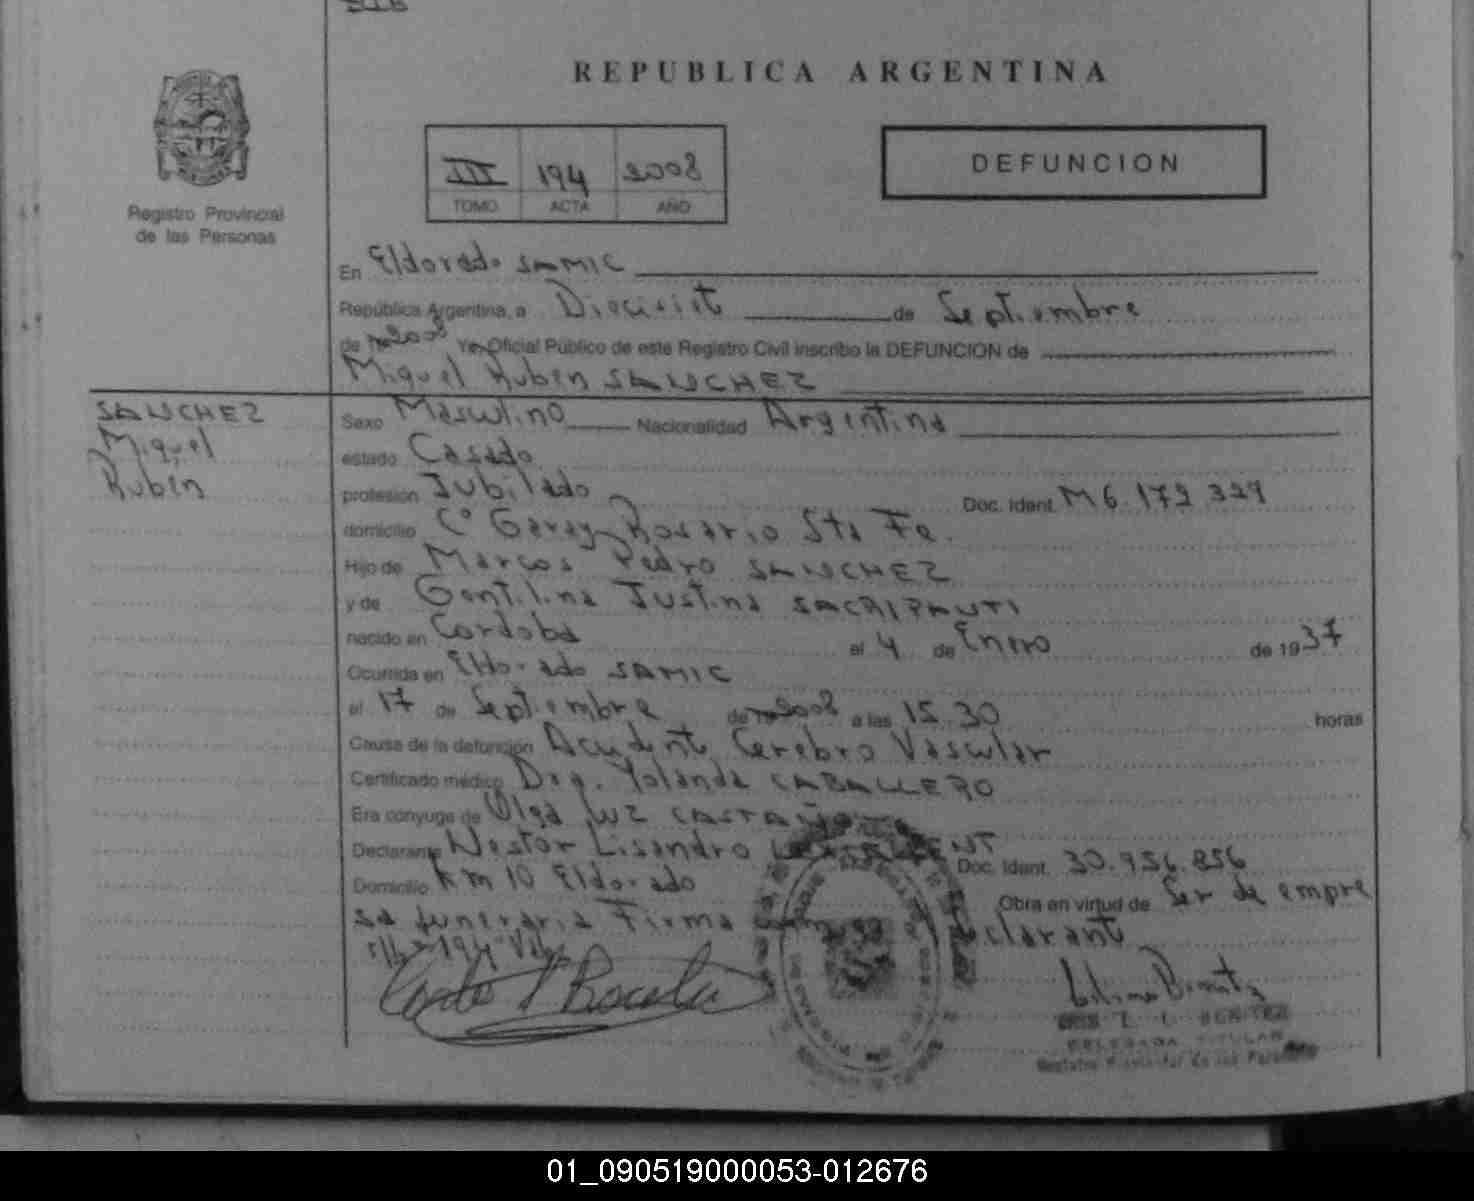 REPUBLICA ARGENTINA
III 194 2008
TOMO ACTA AÑO
DEFUNCION
Registro Provincial
de las Personas
En Eldorado SAMIC
República Argentina, a Diecisiet de Septiembre
de 2008 Yo, Oficial Público de este Registro Civil inscribo la DEFUNCION de
Miguel Ruben SANCHEZ
SANCHEZ
Miguel
Ruben
Sexo Masculino Nacionalidad Argentina
estado Casado
profesión Jubilado Doc. Ident. M6.172.
domicilio Cº Garay Rosario Sta Fe.
Hijo de Marcos Pedro SANCHEZ
y de Gentilina Justina SACRIPANTI
nacido en Cordoba el 4 de Enero de 1937
Ocurrida en Eldorado SAMIC
el 17 de Septiembre de 2008 a las 15.30 horas
Causa de la defunción Accident Cerebro Vascular
Certificado médico Dra. Yolanda CABALLERO
Era conyuge de Olga Luz CASTAÑO
Declarante Nestor Lisandro Doc. Ident. 30.956.856
Domicilio Km 10 Eldorado Obra en virtud de Ser de empre
sa funeraria Firma el declarant
BENITEZ
DELEGADA TITULAR
Registro Provincial de las Personas
01_090519000053-012676